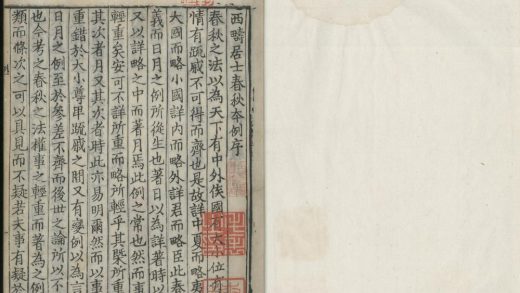 西疇居士春秋本例序
春秋之法以為天下有中外侯國有大小位有
情有疏戚不可得而齊也是故詳中夏而略夷
大國而略小國詳內而略外詳君而略臣此春
義而日月之例所從生也著日以為詳著時以
又以詳略之中而著月焉此例之常也然而事
輕重矣安可不詳所重而略所輕乎其槩所重
其次者月又其次者時此亦易明爾然而以事
重錯於大小尊卑疏戚之間又有變例以為言
日月之例至於參差不齊而後世之論所以不
也今考之春秋之法權事之輕重而著為之例
類而條次之可以具見而不疑若夫事有疑於